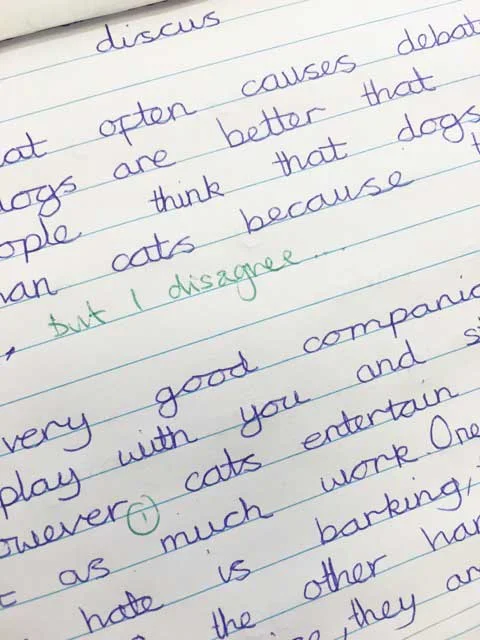 discus
at often causes debat
dogs are better that
ople think that dogs
han cats because t
, but I disagree...
very good companio
play with you and s
owever, cats entertain
t as much work. One
hate is barking,
the other han
, they ar